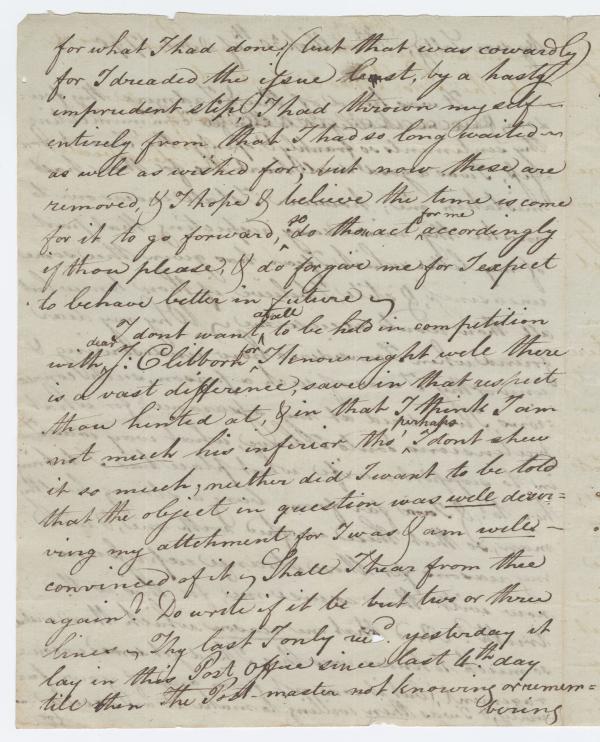 for what I had done, (but that was cowardly)
for I dreaded the issue lest, by a hasty
imprudent step, I had thrown myself
entirely from that I had so long waited
as well as wished for; but now these are
removed, & I hope & believe the time is come
for it to go forward, so do thou act for me accordingly
if thou please, & do forgive me for I expect
to behave better in future
I dont want at all to be held in competition
with dear J: Clibborn for I know right well there
is a vast difference save in that respect
thou hinted at, & in that I think I am
not much his inferior tho' perhaps I dont shew
it so much; neither did I want to be told
that the object in question was well deser=
ving my attchment for I was & am well
convinced of it Shall I hear from thee
again? Do write if it be but two or three
lines Thy last I only recd. yesterday it
lay in this Post Office since last 4th day
till then the Post-master not knowing or remem=
bering